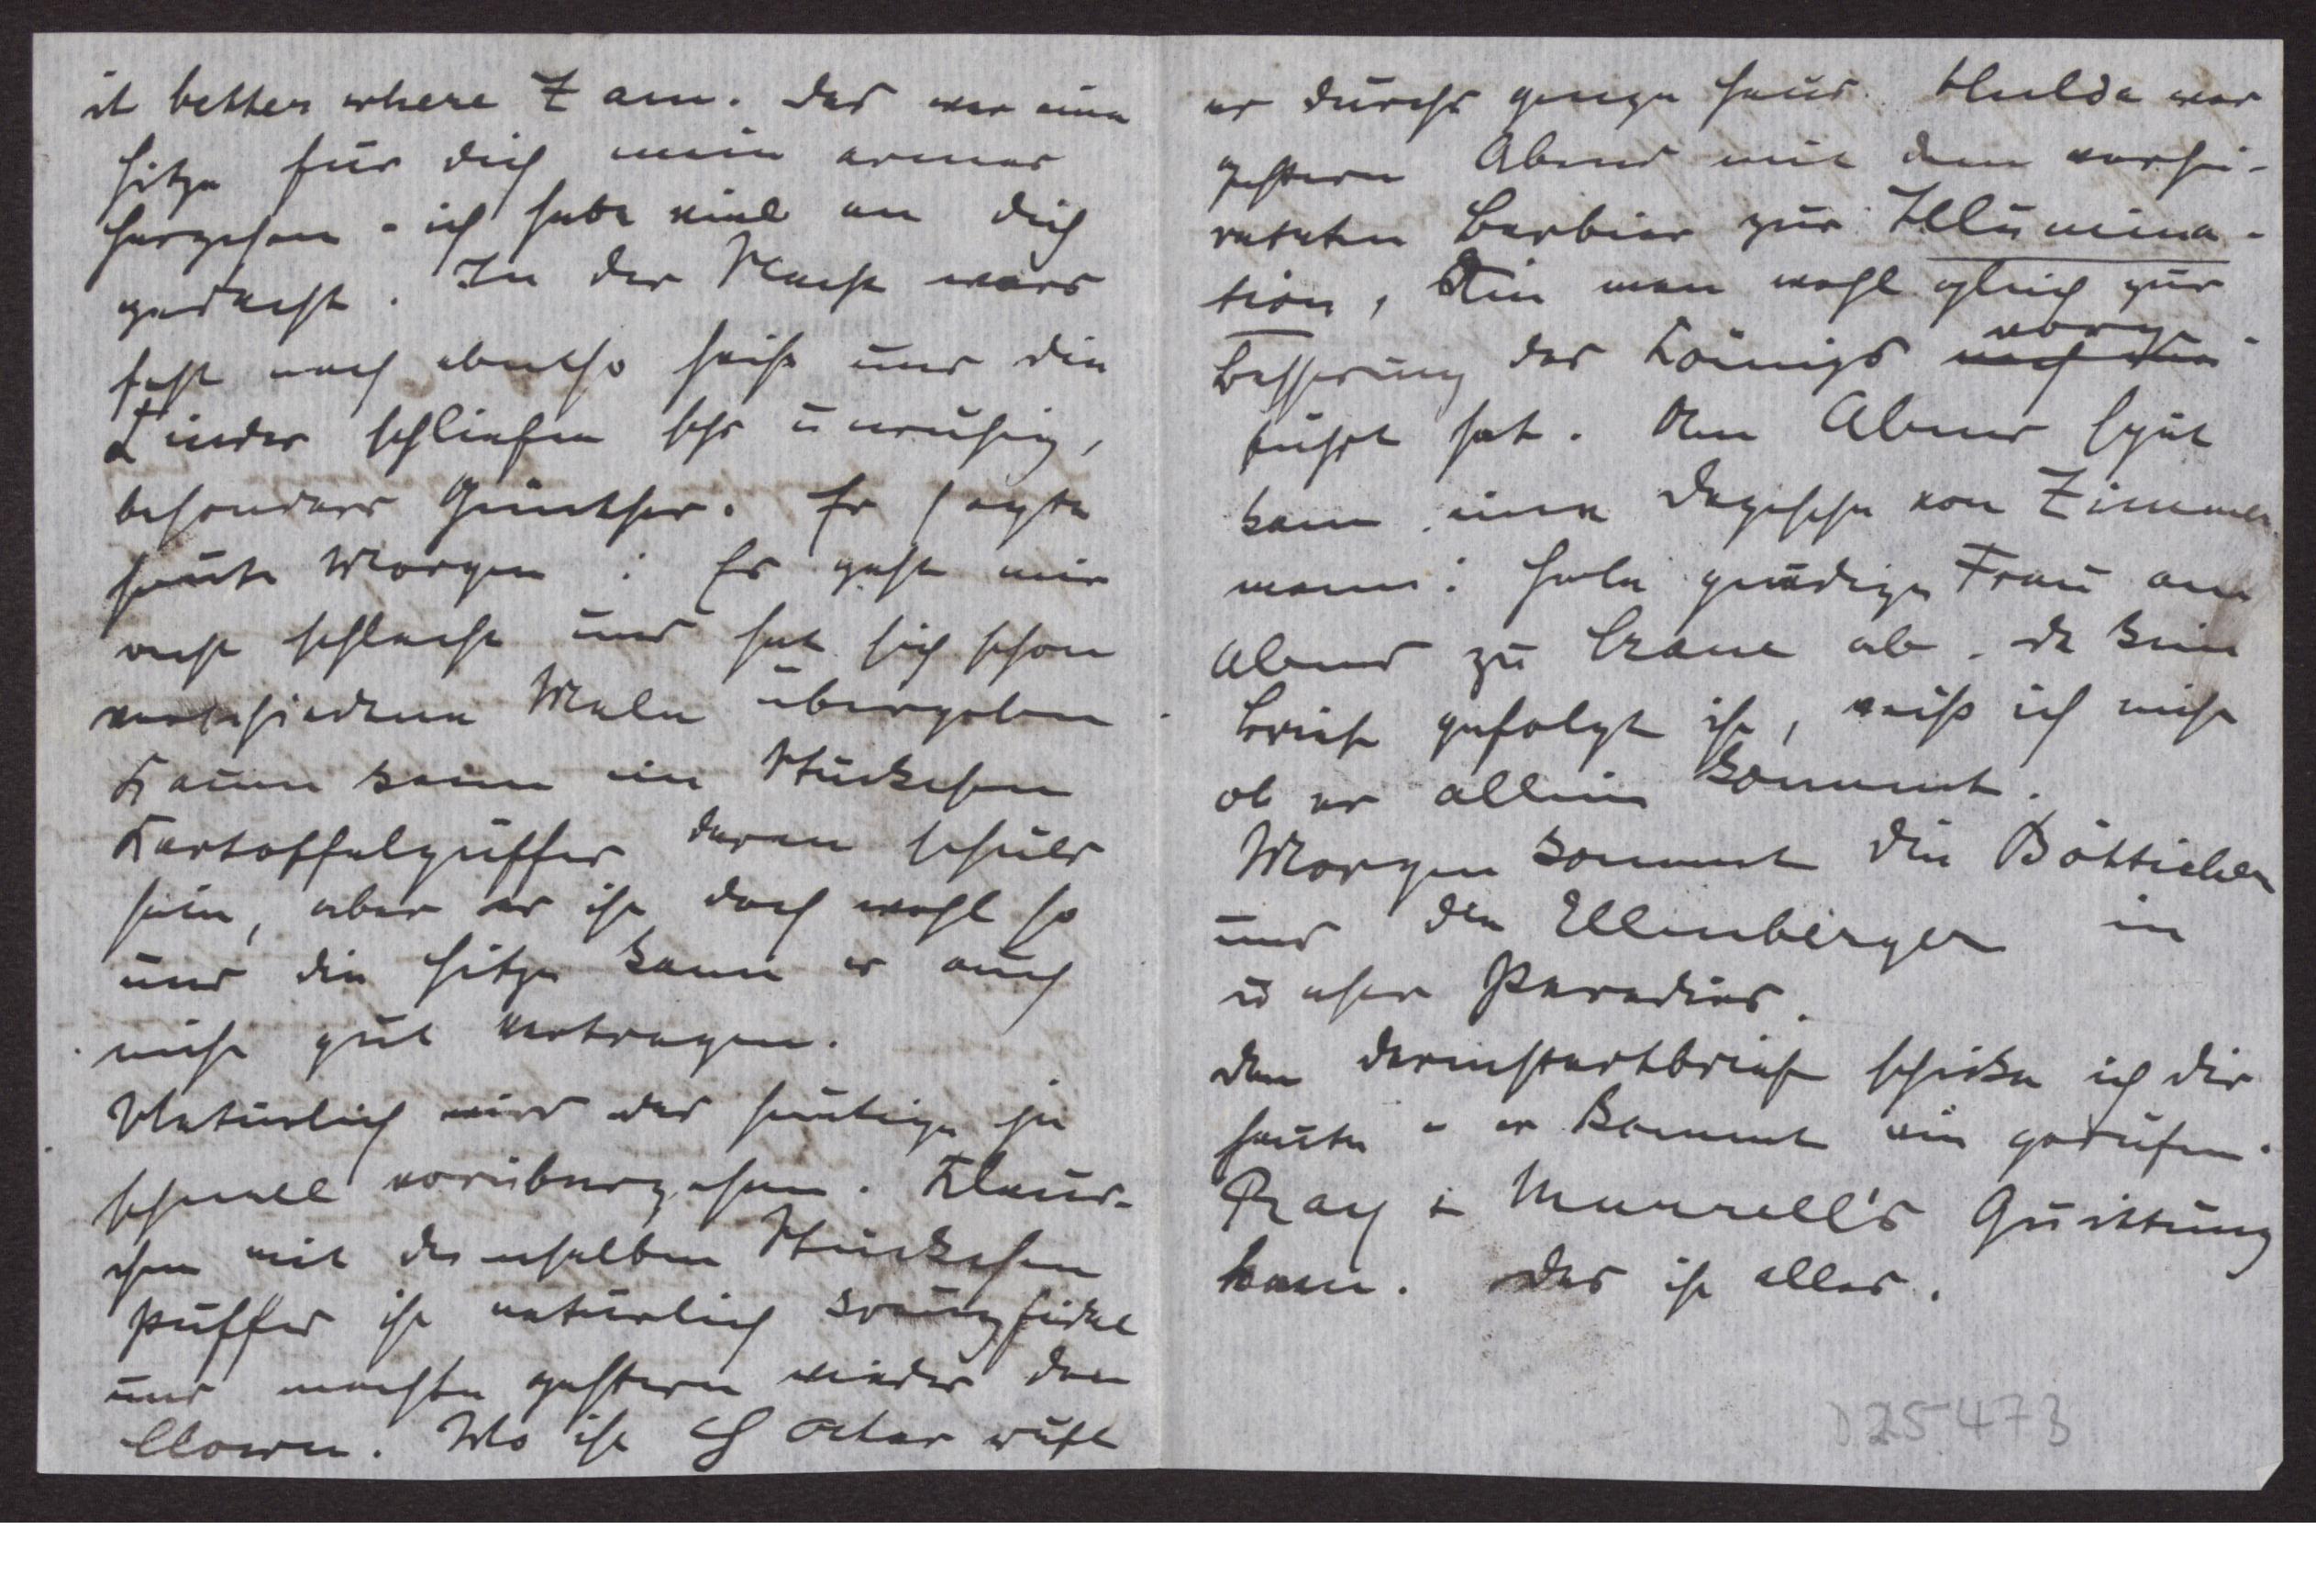 it better where I am. Das war eine
Hitze für dich mein armes
Herzchen - ich habe viel an dich
gedacht. In der Nacht wars
fast noch ebenso heiß und die
Kinder schliefen sehr unruhig,
besonders Günther. Er sagte
heute Morgen: Es geht mir
recht schlecht und hat sich schon
verschiedene Male übergeben.
Kaum kann ein Stückchen
Kartoffelpuffer daran schuld
sein, aber es ist doch wohl so
und die Hitze kann er auch
nicht gut vertragen.
Natürlich wird das heutige ja
schnell vorübergehen. Klaus-
chen mit demselben Stückchen
Puffer ist natürlich kreuzfidel
und machte gestern wieder den
Clown. Wo ist Vater ruft
er durchs ganze Haus. Hulda war
gestern Abend mit dem verhei-
rateten Barbier zur Illumina-
tion, die man wohl gleich zur
Besserung des Königs vorge-
führt hat. Am Abend spät
kam eine Depesche von Zimmer
mann: Hole gnädige Frau am
Abend zu Crane ab. Da kein
Brief gefolgt ist, weiß ich nicht
ob er allein kommt.
Morgen kommt die Bötticher
und die Ellenberger in
unser Paradies.
Den Darmstadtbrief schicke ich dir
heute - er kommt wie gerufen.
Ray & Murrell's Quittung
kam. Das ist alles.
D25473